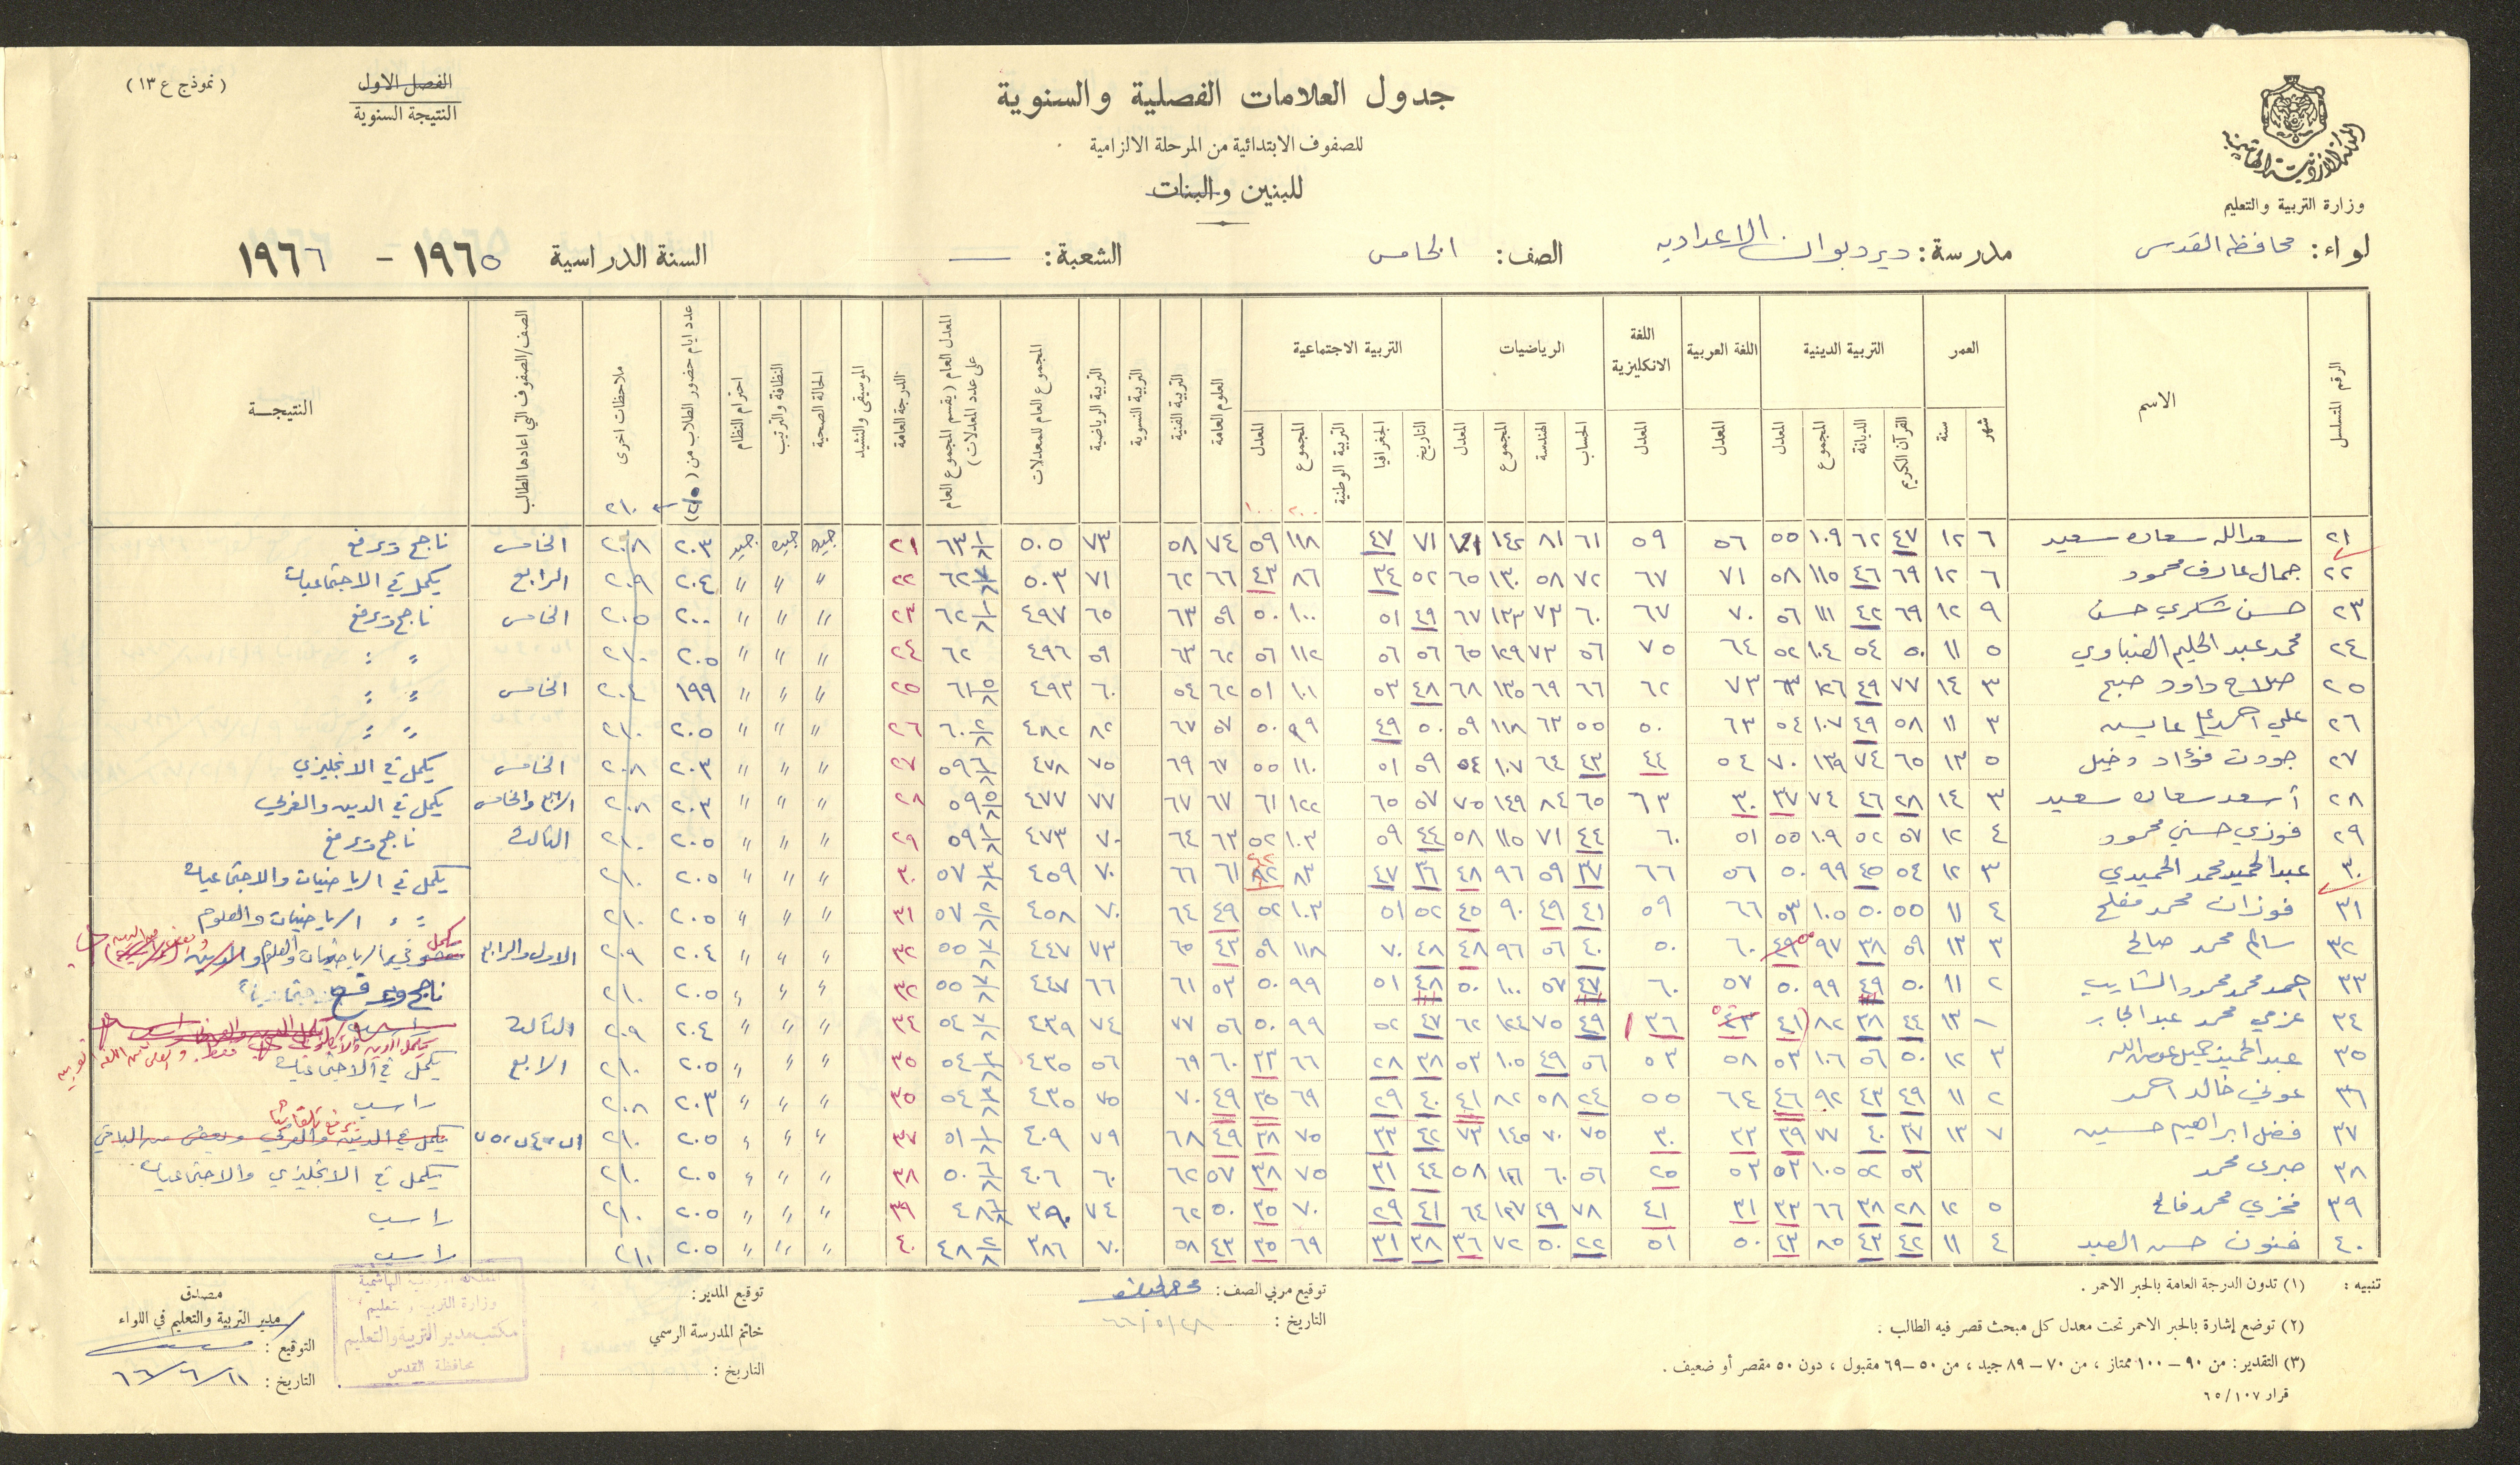 المملكة الأردنية الهاشمية
وزارة التربية والتعليم
جدول العلامات الفصلية والسنوية
للصفوف الابتدائية من المرحلة الالزامية
للبنين والبنات
الفصل الاول
النتيجة السنوية
( نموذج ع ١٣ )
لواء : محافظة القدس مدرسة : دير دبوان الاعدادية الصف : الخامس الشعبة : — السنة الدراسية ١٩٦٥ - ١٩٦٦
الرقم المتسلسل
الاسم
العمر
شهر
سنة
التربية الدينية
القرآن الكريم
الديانة
المجموع
المعدل
اللغة العربية
المعدل
اللغة الانكليزية
المعدل
الرياضيات
الحساب
الهندسة
المجموع
المعدل
التربية الاجتماعية
التاريخ
الجغرافيا
التربية الوطنية
المجموع
المعدل
العلوم العامة
التربية الفنية
التربية النسوية
التربية الرياضية
المجموع العام للمعدلات
المعدل العام ( يقسم المجموع العام على عدد المعدلات )
الدرجة العامة
الموسيقى والنشيد
الحالة الصحية
النظافة والترتيب
احترام النظام
عدد ايام حضور الطلاب من
ملاحظات اخرى
٢١٠
الصف/الصفوف التي اعادها الطالب
النتيجة
٢١ سعدالله سعاده سعيد ٦ ١٢ ٤٧ ٦٢ ١٠٩ ٥٥ ٥٦ ٥٩ ٦١ ٨١ ١٤٢ ٧١ ٧١ ٤٧ ١١٨ ٥٩ ٧٤ ٥٨ ٧٣ ٥٠٥ ٦٣ ١/٨ ٢١ جيده جيده جيد ٢٠٣ ٢٠٨ الخامس ناجح ويرفع
٢٢ جمال عارف محمود ٦ ١٢ ٦٩ ٤٦ ١١٥ ٥٨ ٧١ ٦٧ ٧٢ ٥٨ ١٣٠ ٦٥ ٥٢ ٣٤ ٨٦ ٤٣ ٦٦ ٦٢ ٧١ ٥٠٣ ٦٢ ٧/٨ ٢٢ " " " ٢٠٤ ٢٠٩ الرابع يكمل في الاجتماعيات
٢٣ حسن شكري حسن ٩ ١٢ ٦٩ ٤٢ ١١١ ٥٦ ٧٠ ٦٧ ٦٠ ٧٣ ١٣٣ ٦٧ ٤٩ ٥١ ١٠٠ ٥٠ ٥٩ ٦٣ ٦٥ ٤٩٧ ٦٢ ١/٨ ٢٣ " " " ٢٠٠ ٢٠٥ الخامس ناجح ويرفع
٢٤ محمد عبد الحليم القنباوي ٥ ١١ ٥٠ ٥٤ ١٠٤ ٥٢ ٦٤ ٧٥ ٥٦ ٧٣ ١٢٩ ٦٥ ٥٦ ٥٦ ١١٢ ٥٦ ٦٢ ٦٣ ٥٩ ٤٩٦ ٦٢ ٢٤ " " " ٢٠٥ ٢١٠ " "
٢٥ صلاح داود صبح ٣ ١٤ ٧٧ ٤٩ ١٢٦ ٦٣ ٧٣ ٦٢ ٦٦ ٦٩ ١٣٥ ٦٨ ٤٨ ٥٣ ١٠١ ٥١ ٦٢ ٥٤ ٦٠ ٤٩٣ ٦١ ٥/٨ ٢٥ " " " ١٩٩ ٢٠٤ الخامس " "
٢٦ علي احمد علي عايش ٣ ١١ ٥٨ ٤٩ ١٠٧ ٥٤ ٦٣ ٥٠ ٥٥ ٦٣ ١١٨ ٥٩ ٥٠ ٤٩ ٩٩ ٥٠ ٥٧ ٦٧ ٨٢ ٤٨٢ ٦٠ ٢/٨ ٢٦ " " " ٢٠٥ ٢١٠ " "
٢٧ جودت فؤاد دخيل ٥ ١٣ ٦٥ ٧٤ ١٣٩ ٧٠ ٥٤ ٤٤ ٤٣ ٦٤ ١٠٧ ٥٤ ٥٩ ٥١ ١١٠ ٥٥ ٦٧ ٦٩ ٧٥ ٤٧٨ ٥٩ ٦/٨ ٢٧ " " " ٢٠٣ ٢٠٨ الخامس يكمل في الانجليزي
٢٨ أسعد سعاده سعيد ٣ ١٤ ٢٨ ٤٦ ٧٤ ٣٧ ٣٠ ٦٣ ٦٥ ٨٤ ١٤٩ ٧٥ ٥٧ ٦٥ ١٢٢ ٦١ ٦٧ ٦٧ ٧٧ ٤٧٧ ٥٩ ٥/٨ ٢٨ " " " ٢٠٣ ٢٠٨ الرابع والخامس يكمل في الدين والعربي
٢٩ فوزي حسني محمود ٤ ١٢ ٥٧ ٥٢ ١٠٩ ٥٥ ٥١ ٦٠ ٤٤ ٧١ ١١٥ ٥٨ ٤٤ ٥٩ ١٠٣ ٥٢ ٦٣ ٦٤ ٧٠ ٤٧٣ ٥٩ ١/٨ ٢٩ " " " ٢٠٥ ٢١٠ الثالث ناجح ويرفع
٣٠ عبدالحميد محمد الحميدي ٣ ١٢ ٥٤ ٤٥ ٩٩ ٥٠ ٥٦ ٦٦ ٣٧ ٥٩ ٩٦ ٤٨ ٣٦ ٤٧ ٨٣ ٤٢ ٦١ ٦٦ ٧٠ ٤٥٩ ٥٧ ٣/٨ ٣٠ " " " ٢٠٥ ٢١٠ يكمل في الرياضيات والاجتماعيات
٣١ فوزان محمد مفلح ٤ ١١ ٥٥ ٥٠ ١٠٥ ٥٣ ٦٦ ٥٩ ٤١ ٤٩ ٩٠ ٤٥ ٥٢ ٥١ ١٠٣ ٥٢ ٤٩ ٦٤ ٧٠ ٤٥٨ ٥٧ ٢/٨ ٣١ " " " ٢٠٥ ٢١٠ " " الرياضيات والعلوم
٣٢ سالم محمد صالح ٣ ١٣ ٥٩ ٣٨ ٩٧ ٤٩ ٦٠ ٥٠ ٤٠ ٥٦ ٩٦ ٤٨ ٤٨ ٧٠ ١١٨ ٥٩ ٤٣ ٦٥ ٧٣ ٤٤٧ ٥٥ ٧/٨ ٣٢ " " " ٢٠٤ ٢٠٩ الاول والرابع يكمل في الرياضيات والعلوم
٣٣ احمد محمد محمود الشايب ٢ ١١ ٥٠ ٤٩ ٩٩ ٥٠ ٥٧ ٦٠ ٤٣ ٥٧ ١٠٠ ٥٠ ٤٨ ٥١ ٩٩ ٥٠ ٥٣ ٦١ ٦٦ ٤٤٧ ٥٥ ٧/٨ ٣٢ " " " ٢٠٥ ٢١٠ ناجح ويرفع
٣٤ عزمي محمد عبد الجابر ١ ١٣ ٤٤ ٣٨ ٨٢ ٤١ ٤٣ ٣٦ ٤٩ ٧٥ ١٢٤ ٦٢ ٤٧ ٥٢ ٩٩ ٥٠ ٥٦ ٧٧ ٧٤ ٤٣٩ ٥٤ ٧/٨ ٣٤ " " " ٢٠٤ ٢٠٩ الثالث راسب
٣٥ عبدالحميد جميل عوض الله ٣ ١٢ ٥٠ ٥٦ ١٠٦ ٥٣ ٥٨ ٥٣ ٥٦ ٤٩ ١٠٥ ٥٣ ٣٨ ٢٨ ٦٦ ٣٣ ٦٠ ٦٩ ٥٦ ٤٣٥ ٥٤ ٣/٨ ٣٥ " " " ٢٠٥ ٢١٠ الرابع يكمل في الاجتماعيات
٣٦ عوني خالد احمد ٢ ١١ ٤٩ ٤٣ ٩٢ ٤٦ ٦٤ ٥٥ ٢٤ ٥٨ ٨٢ ٤١ ٤٠ ٢٩ ٦٩ ٣٥ ٤٩ ٧٠ ٧٥ ٤٣٥ ٥٤ ٣/٨ ٣٥ " " " ٢٠٣ ٢٠٨ راسب
٣٧ فضل ابراهيم حسين ٧ ١٣ ٣٧ ٤٠ ٧٧ ٣٩ ٣٣ ٣٠ ٧٥ ٧٠ ١٤٥ ٧٣ ٤٢ ٣٣ ٧٥ ٣٨ ٤٩ ٦٨ ٧٩ ٤٠٩ ٥١ ١/٨ ٣٧ " " " ٢٠٥ ٢١٠ يكمل في الدين والعربي يرفع تلقائيا
٣٨ صبري محمد ٥٣ ٥٢ ١٠٥ ٥٣ ٥٣ ٢٥ ٥٦ ٦٠ ١١٦ ٥٨ ٤٤ ٣١ ٧٥ ٣٨ ٥٧ ٦٢ ٦٠ ٤٠٦ ٥٠ ٦/٨ ٣٨ " " " ٢٠٥ ٢١٠ يكمل في الانجليزي والاجتماعيات
٣٩ فخري محمد فالح ٥ ١٢ ٢٨ ٣٨ ٦٦ ٣٣ ٣١ ٤١ ٧٨ ٤٩ ١٢٧ ٦٤ ٤١ ٢٩ ٧٠ ٣٥ ٥٠ ٦٢ ٧٤ ٣٩٠ ٤٨ ٦/٨ ٣٩ " " " ٢٠٥ ٢١٠ راسب
٤٠ غنون حسن العبد ٤ ١١ ٤٢ ٤٣ ٨٥ ٤٣ ٥٠ ٥١ ٢٢ ٥٠ ٧٢ ٣٦ ٣٨ ٣١ ٦٩ ٣٥ ٤٣ ٥٨ ٧٠ ٣٨٦ ٤٨ ٢/٨ ٤٠ " " " ٢٠٥ ٢١٠ راسب
تنبيه : (١) تدون الدرجة العامة بالحبر الاحمر .
(٢) توضع إشارة بالحبر الاحمر تحت معدل كل مبحث قصر فيه الطالب .
(٣) التقدير : من ٩٠ – ١٠٠ ممتاز ، من ٧٠ – ٨٩ جيد ، من ٥٠ – ٦٩ مقبول ، دون ٥٠ مقصر أو ضعيف .
قرار ٦٥/١٠٧
توقيع مربي الصف :
التاريخ : ٦٦/٥/٢٨
توقيع المدير :
خاتم المدرسة الرسمي
التاريخ :
وزارة التربية والتعليم
مكتب مدير التربية والتعليم
محافظة القدس
مصدق
مدير التربية والتعليم في اللواء
التوقيع :
التاريخ : ٦٦/٦/١١